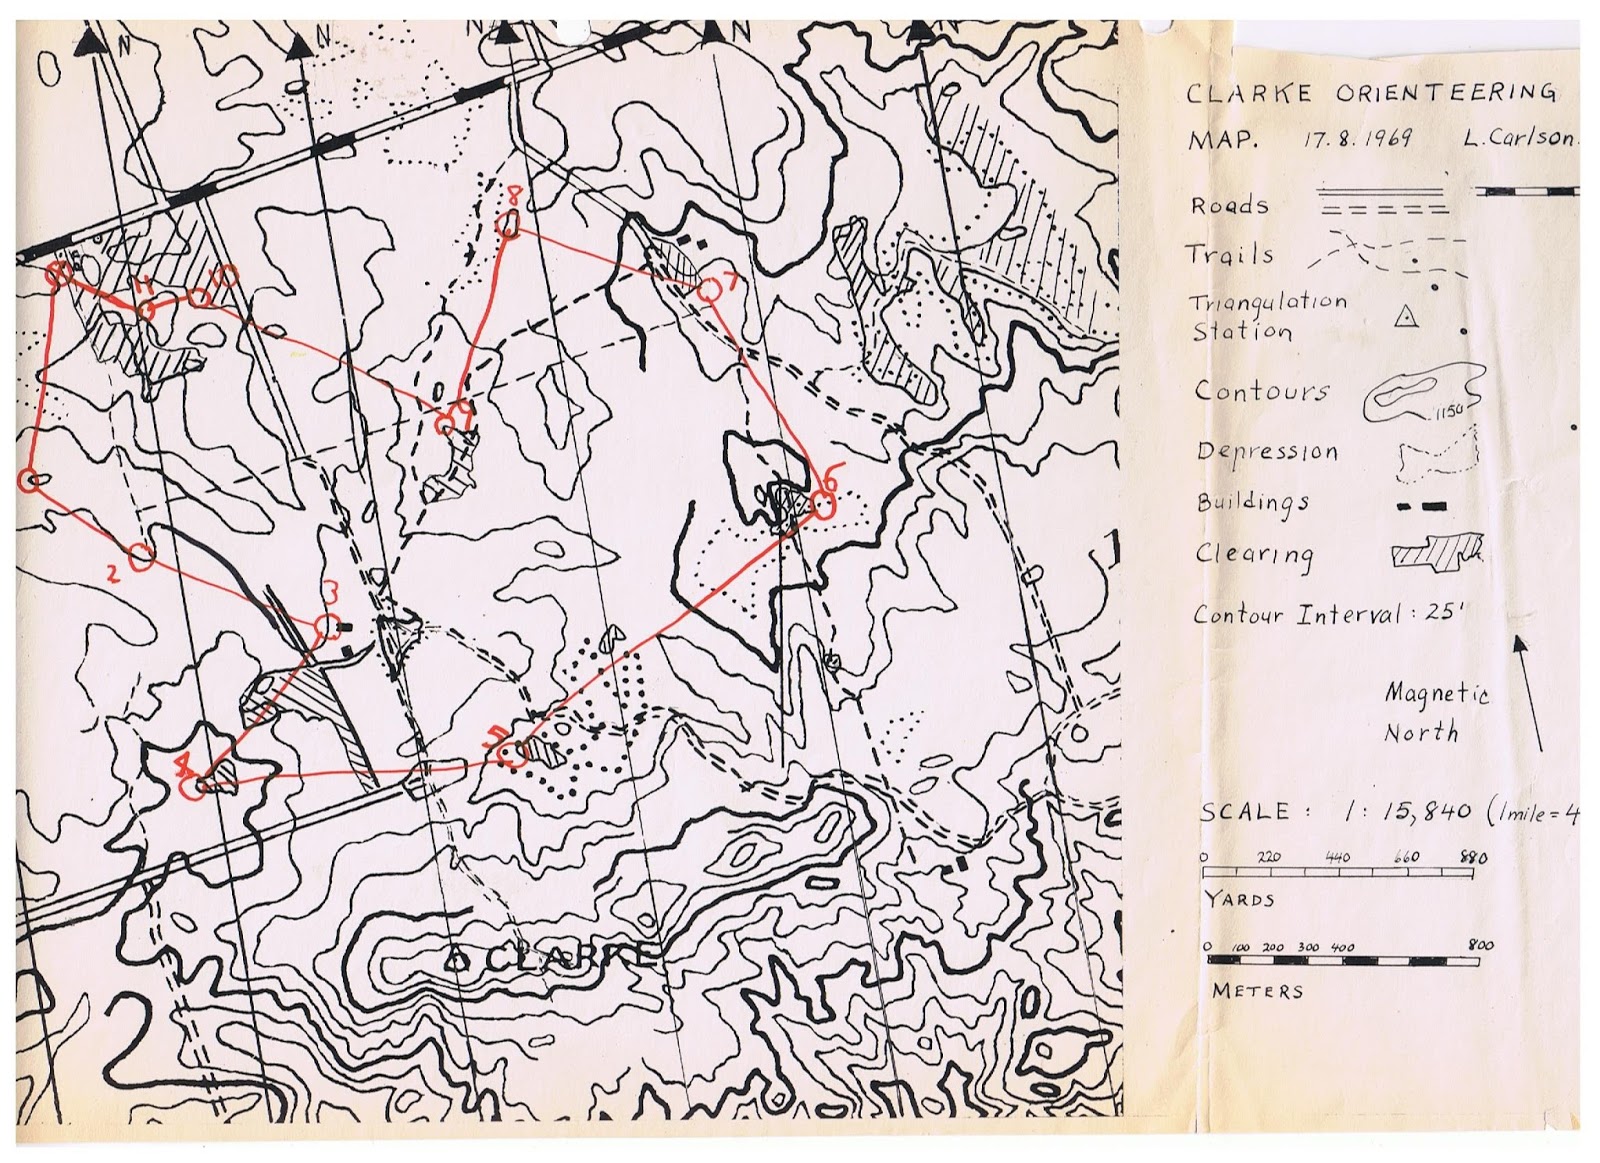 N
N
N
N
8
7
11
10
9
6
2
3
4
5
CLARKE
CLARKE ORIENTEERING
MAP. 17.8.1969 L.Carlson.
Roads
Trails
Triangulation
Station
Contours
1150
Depression
Buildings
Clearing
Contour Interval: 25'
Magnetic
North
SCALE: 1:15,840 (1mile=4
0 220 440 660 880
YARDS
0 100 200 300 400 800
METERS